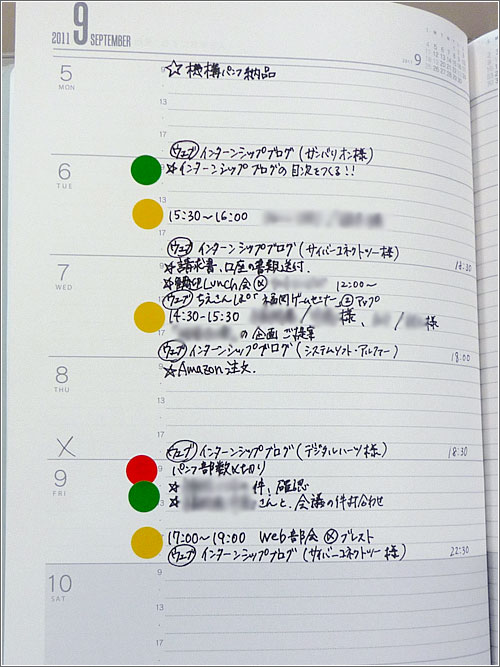 2011 9 SEPTEMBER
2011 9
5 MON
☆機構パンフ納品
ウェブ インターンシップブログ(ガンバリオン様)
6 TUE
☆インターンシップブログの目次をつくる!!
15:30〜16:00
ウェブ インターンシップブログ(サイバーコネクトツー様)
7 WED
☆請求書、口座の書類送付.
Lunch会 12:00〜
ウェブ 福岡ゲームセミナー② アップ
14:30-15:30 様、 様
の企画ご提案
ウェブ インターンシップブログ(システムソフト・アルファー) 18:00
8 THU
☆Amazon注文.
ウェブ インターンシップブログ(デジタルハーツ様) 18:30
9 FRI
パンフ部数〆切り
☆ 件、確認
☆ さんと、会議の件打合わせ
17:00〜19:00 Web部会 ブレスト
ウェブ インターンシップブログ(サイバーコネクトツー様) 22:30
10 SAT